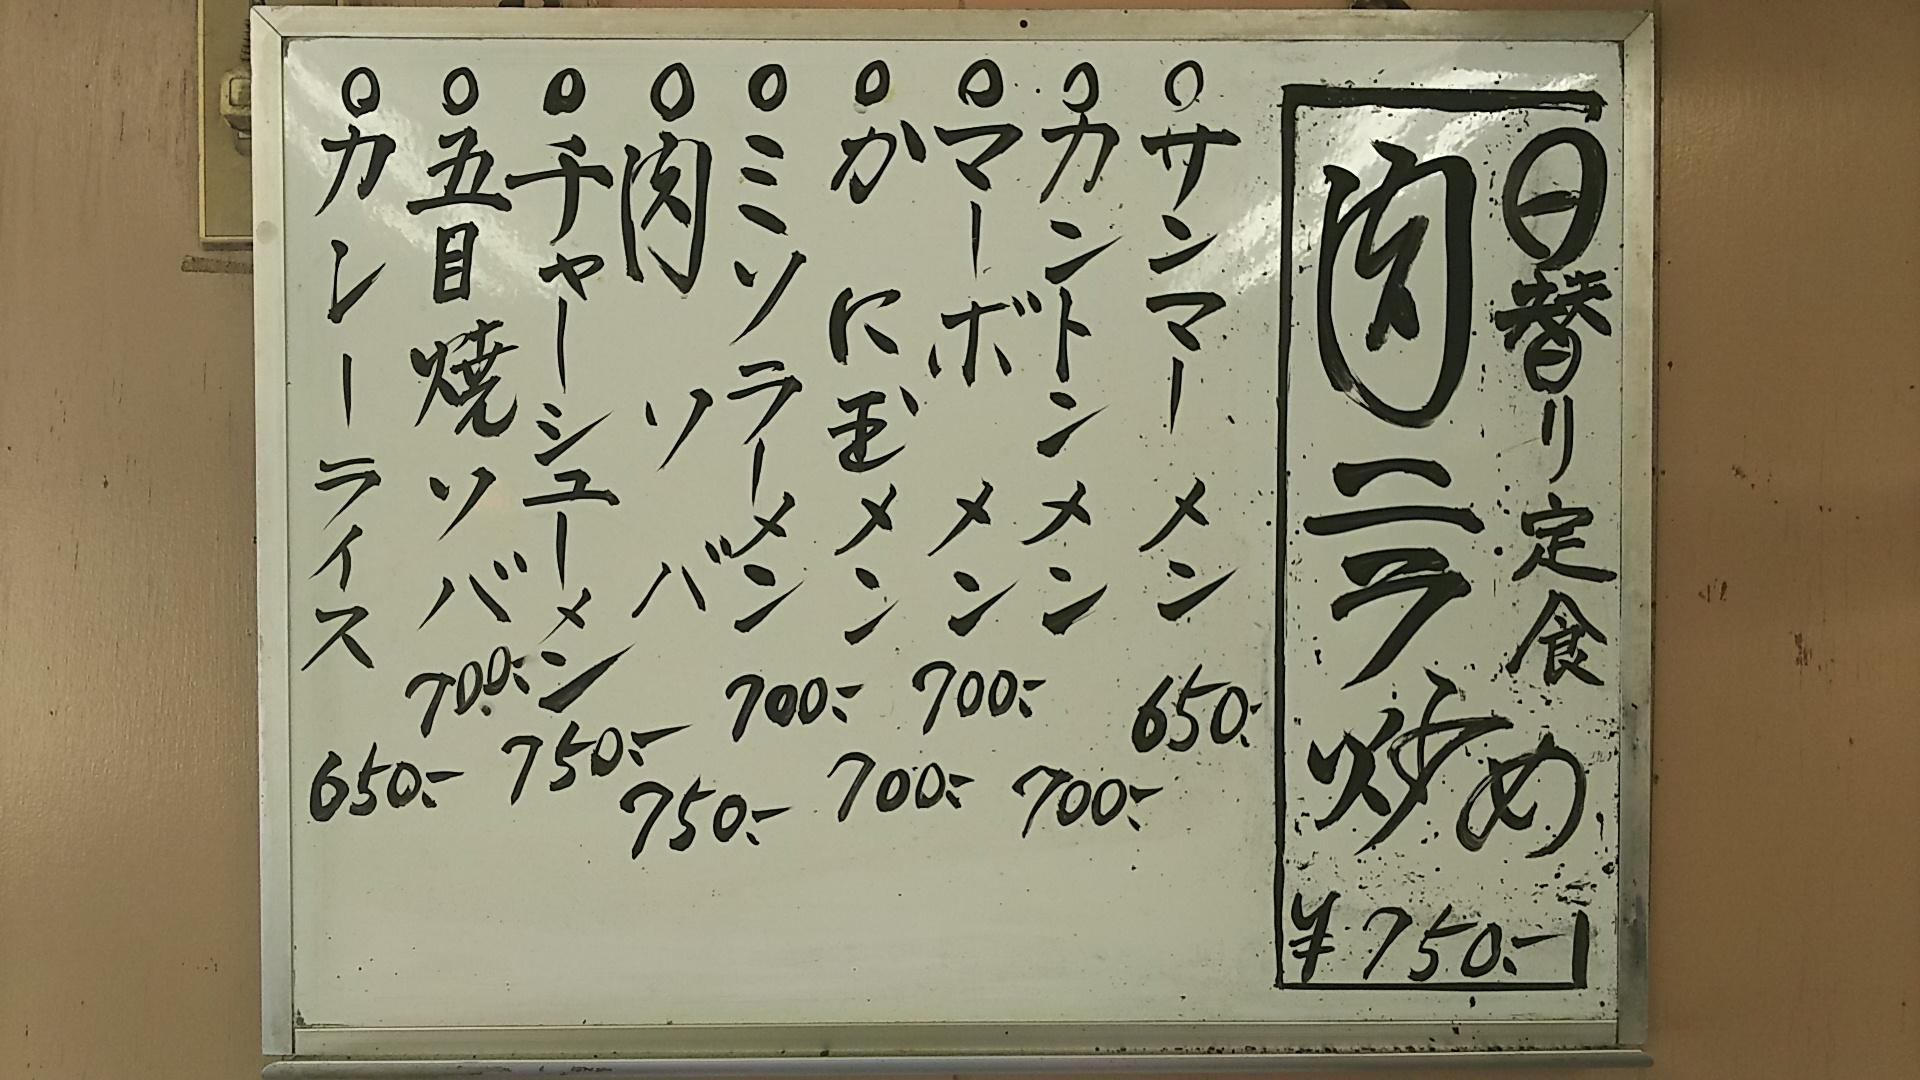 日替り定食
肉ニラ炒め
¥750.-
○サンマーメン 650.-
○カントンメン 700.-
○マーボメン 700.-
○かに玉メン 700.-
○ミソラーメン 700.-
○肉ソバ 750.-
○チャーシューメン 750.-
○五目焼ソバ 700.-
○カレーライス 650.-